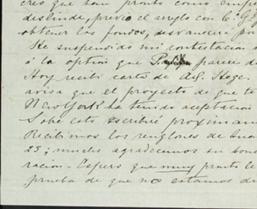 cres que han pronto como emp
deslinde, previo el arreglo con Cº G
obtener los fondos, desvanecer
He suspendido mi contestacion
á la option que parece de
Hoy recibí carta de A.G. Hoge
avisa que el proyecto de que te
New York ha tenido aceptacion
Sobre esto escribiré proximam
Recibimos los renglones de tu
25; mucho agradecemos su bon
racion. Espero que muy pronto le
prueba de que no estamos de